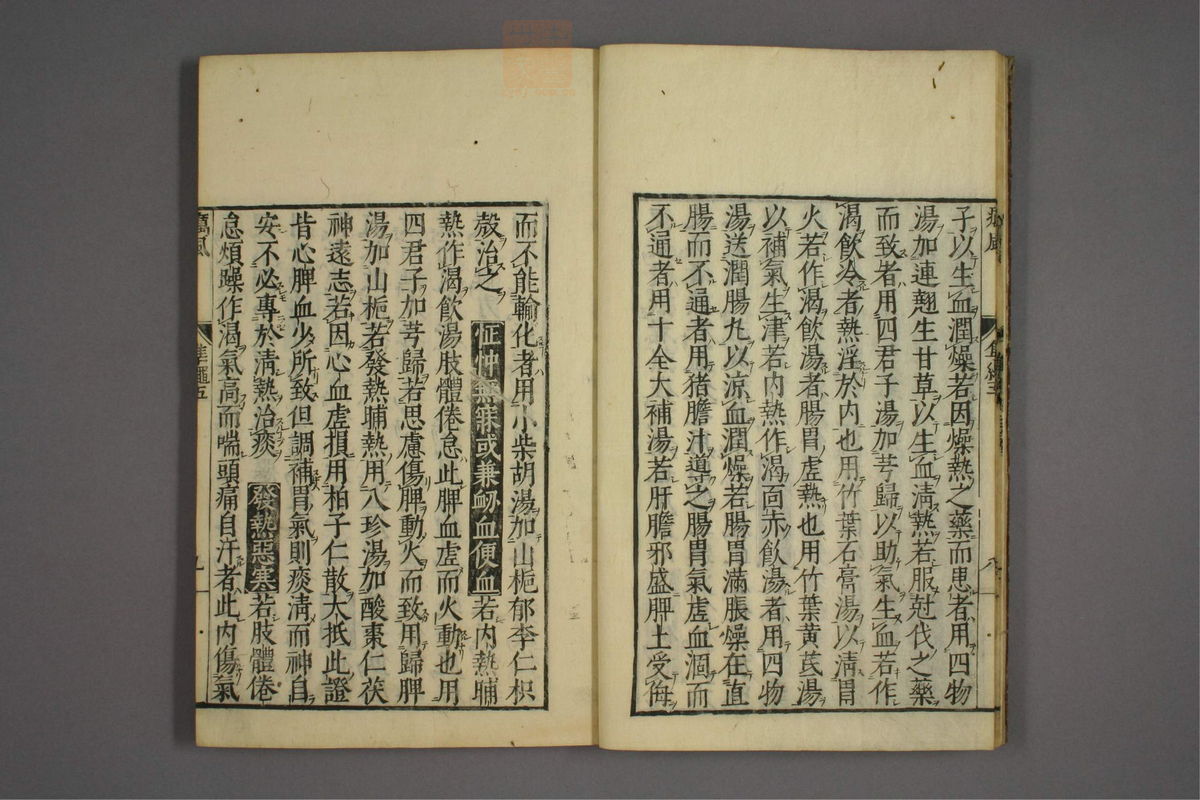 子以生血潤燥若因燥熱之藥而患者用四物
湯加連翹生甘草以生血淸熱若服尅伐之藥
而致者用四君子湯加芎歸以助氣生血若作
渴飮冷者熱淫於内也用竹葉石膏湯以淸胃
火若作渴飮湯者腸胃虛熱也用竹葉黄芪湯
以補氣生津若内熱作渴面赤飮湯者用四物
湯送潤腸丸以凉血潤燥若腸胃滿脹燥在直
腸而不通者用猪膽汁導之腸胃氣虛血涸而
不通者用十全大補湯若肝膽邪盛脾土受侮
而不能輸化者用小柴胡湯加山梔郁李仁枳
殼治之 怔忡無寐或兼衂血便血若内熱晡
熱作渴飮湯肢體倦怠此脾血虛而火動也用
四君子加芎歸若思慮傷脾動火而致用歸脾
湯加山梔若發熱晡熱用八珍湯加酸棗仁茯
神遠志若因心血虛損用柏子仁散大抵此證
皆心脾血少所致但調補胃氣則痰淸而神自
安不必專於淸熱治痰 發熱惡寒若肢體倦
怠煩躁作渴氣高而喘頭痛自汗者此内傷氣
癘風